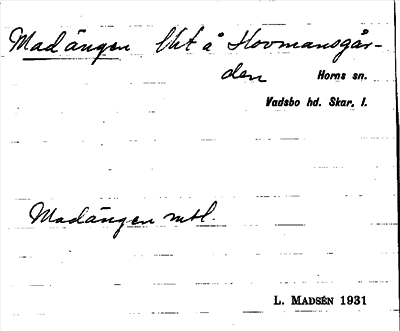 Madängen lht å Hovmansgår-
den Horns sn.
Vadsbo hd. Skar. l.
Madängen mtl.
L. MADSÉN 1931